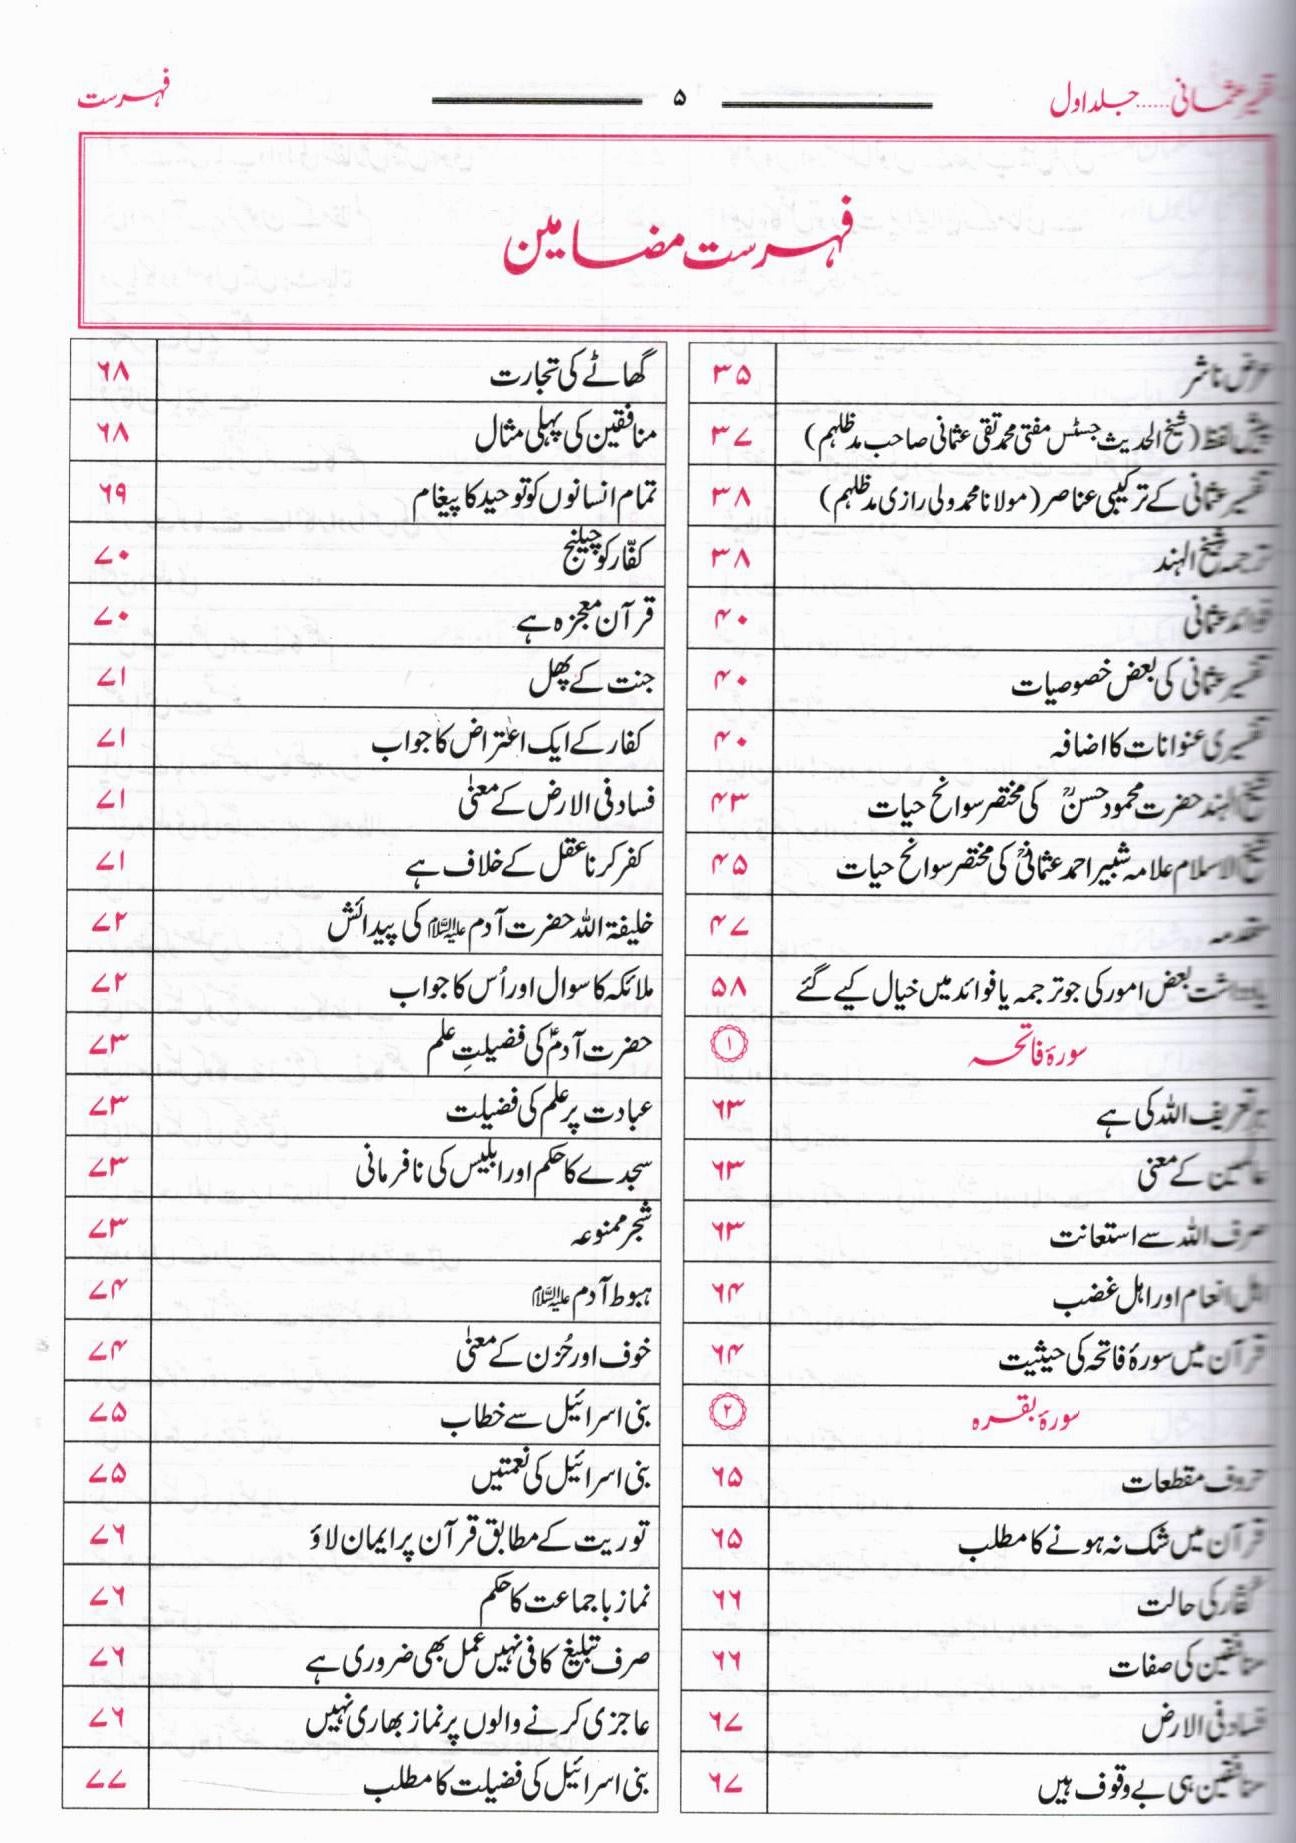 تفسیر عثمانی ...... جلد اول
۵
فہرست
فہرست مضامین
عرض ناشر ۳۵
پیش لفظ (شیخ الحدیث جسٹس مفتی محمد تقی عثمانی صاحب مدظلہم) ۳۷
تفسیر عثمانی کے ترکیبی عناصر (مولانا محمد ولی رازی مدظلہم) ۳۸
ترجمہ شیخ الہند ۳۸
فوائد عثمانی ۴۰
تفسیر عثمانی کی بعض خصوصیات ۴۰
تفسیری عنوانات کا اضافہ ۴۰
شیخ الہند حضرت محمود حسنؒ کی مختصر سوانح حیات ۴۳
شیخ الاسلام علامہ شبیر احمد عثمانیؒ کی مختصر سوانح حیات ۴۵
مقدمہ ۴۷
یادداشت بعض امور کی جو ترجمہ یا فوائد میں خیال کیے گئے ۵۸
سورۂ فاتحہ ۱
ہر تعریف اللہ کی ہے ۶۳
عالمین کے معنی ۶۳
صرف اللہ سے استعانت ۶۳
اہل انعام اور اہل غضب ۶۴
قرآن میں سورۂ فاتحہ کی حیثیت ۶۴
سورۂ بقرہ ۲
حروف مقطعات ۶۵
قرآن میں شک نہ ہونے کا مطلب ۶۵
کفّار کی حالت ۶۶
منافقین کی صفات ۶۶
فساد فی الارض ۶۷
منافقین ہی بے وقوف ہیں ۶۷
گھاٹے کی تجارت ۶۸
منافقین کی پہلی مثال ۶۸
تمام انسانوں کو توحید کا پیغام ۶۹
کفّار کو چیلنج ۷۰
قرآن معجزہ ہے ۷۰
جنت کے پھل ۷۱
کفار کے ایک اعتراض کا جواب ۷۱
فساد فی الارض کے معنیٰ ۷۱
کفر کرنا عقل کے خلاف ہے ۷۱
خلیفۃ اللہ حضرت آدم علیہ السلام کی پیدائش ۷۲
ملائکہ کا سوال اور اُس کا جواب ۷۲
حضرت آدمؑ کی فضیلتِ علم ۷۳
عبادت پر علم کی فضیلت ۷۳
سجدے کا حکم اور ابلیس کی نافرمانی ۷۳
شجر ممنوعہ ۷۳
ہبوط آدم علیہ السلام ۷۴
خوف اور حُزن کے معنیٰ ۷۴
بنی اسرائیل سے خطاب ۷۵
بنی اسرائیل کی نعمتیں ۷۵
توریت کے مطابق قرآن پر ایمان لاؤ ۷۶
نماز باجماعت کا حکم ۷۶
صرف تبلیغ کافی نہیں عمل بھی ضروری ہے ۷۶
عاجزی کرنے والوں پر نماز بھاری نہیں ۷۶
بنی اسرائیل کی فضیلت کا مطلب ۷۷